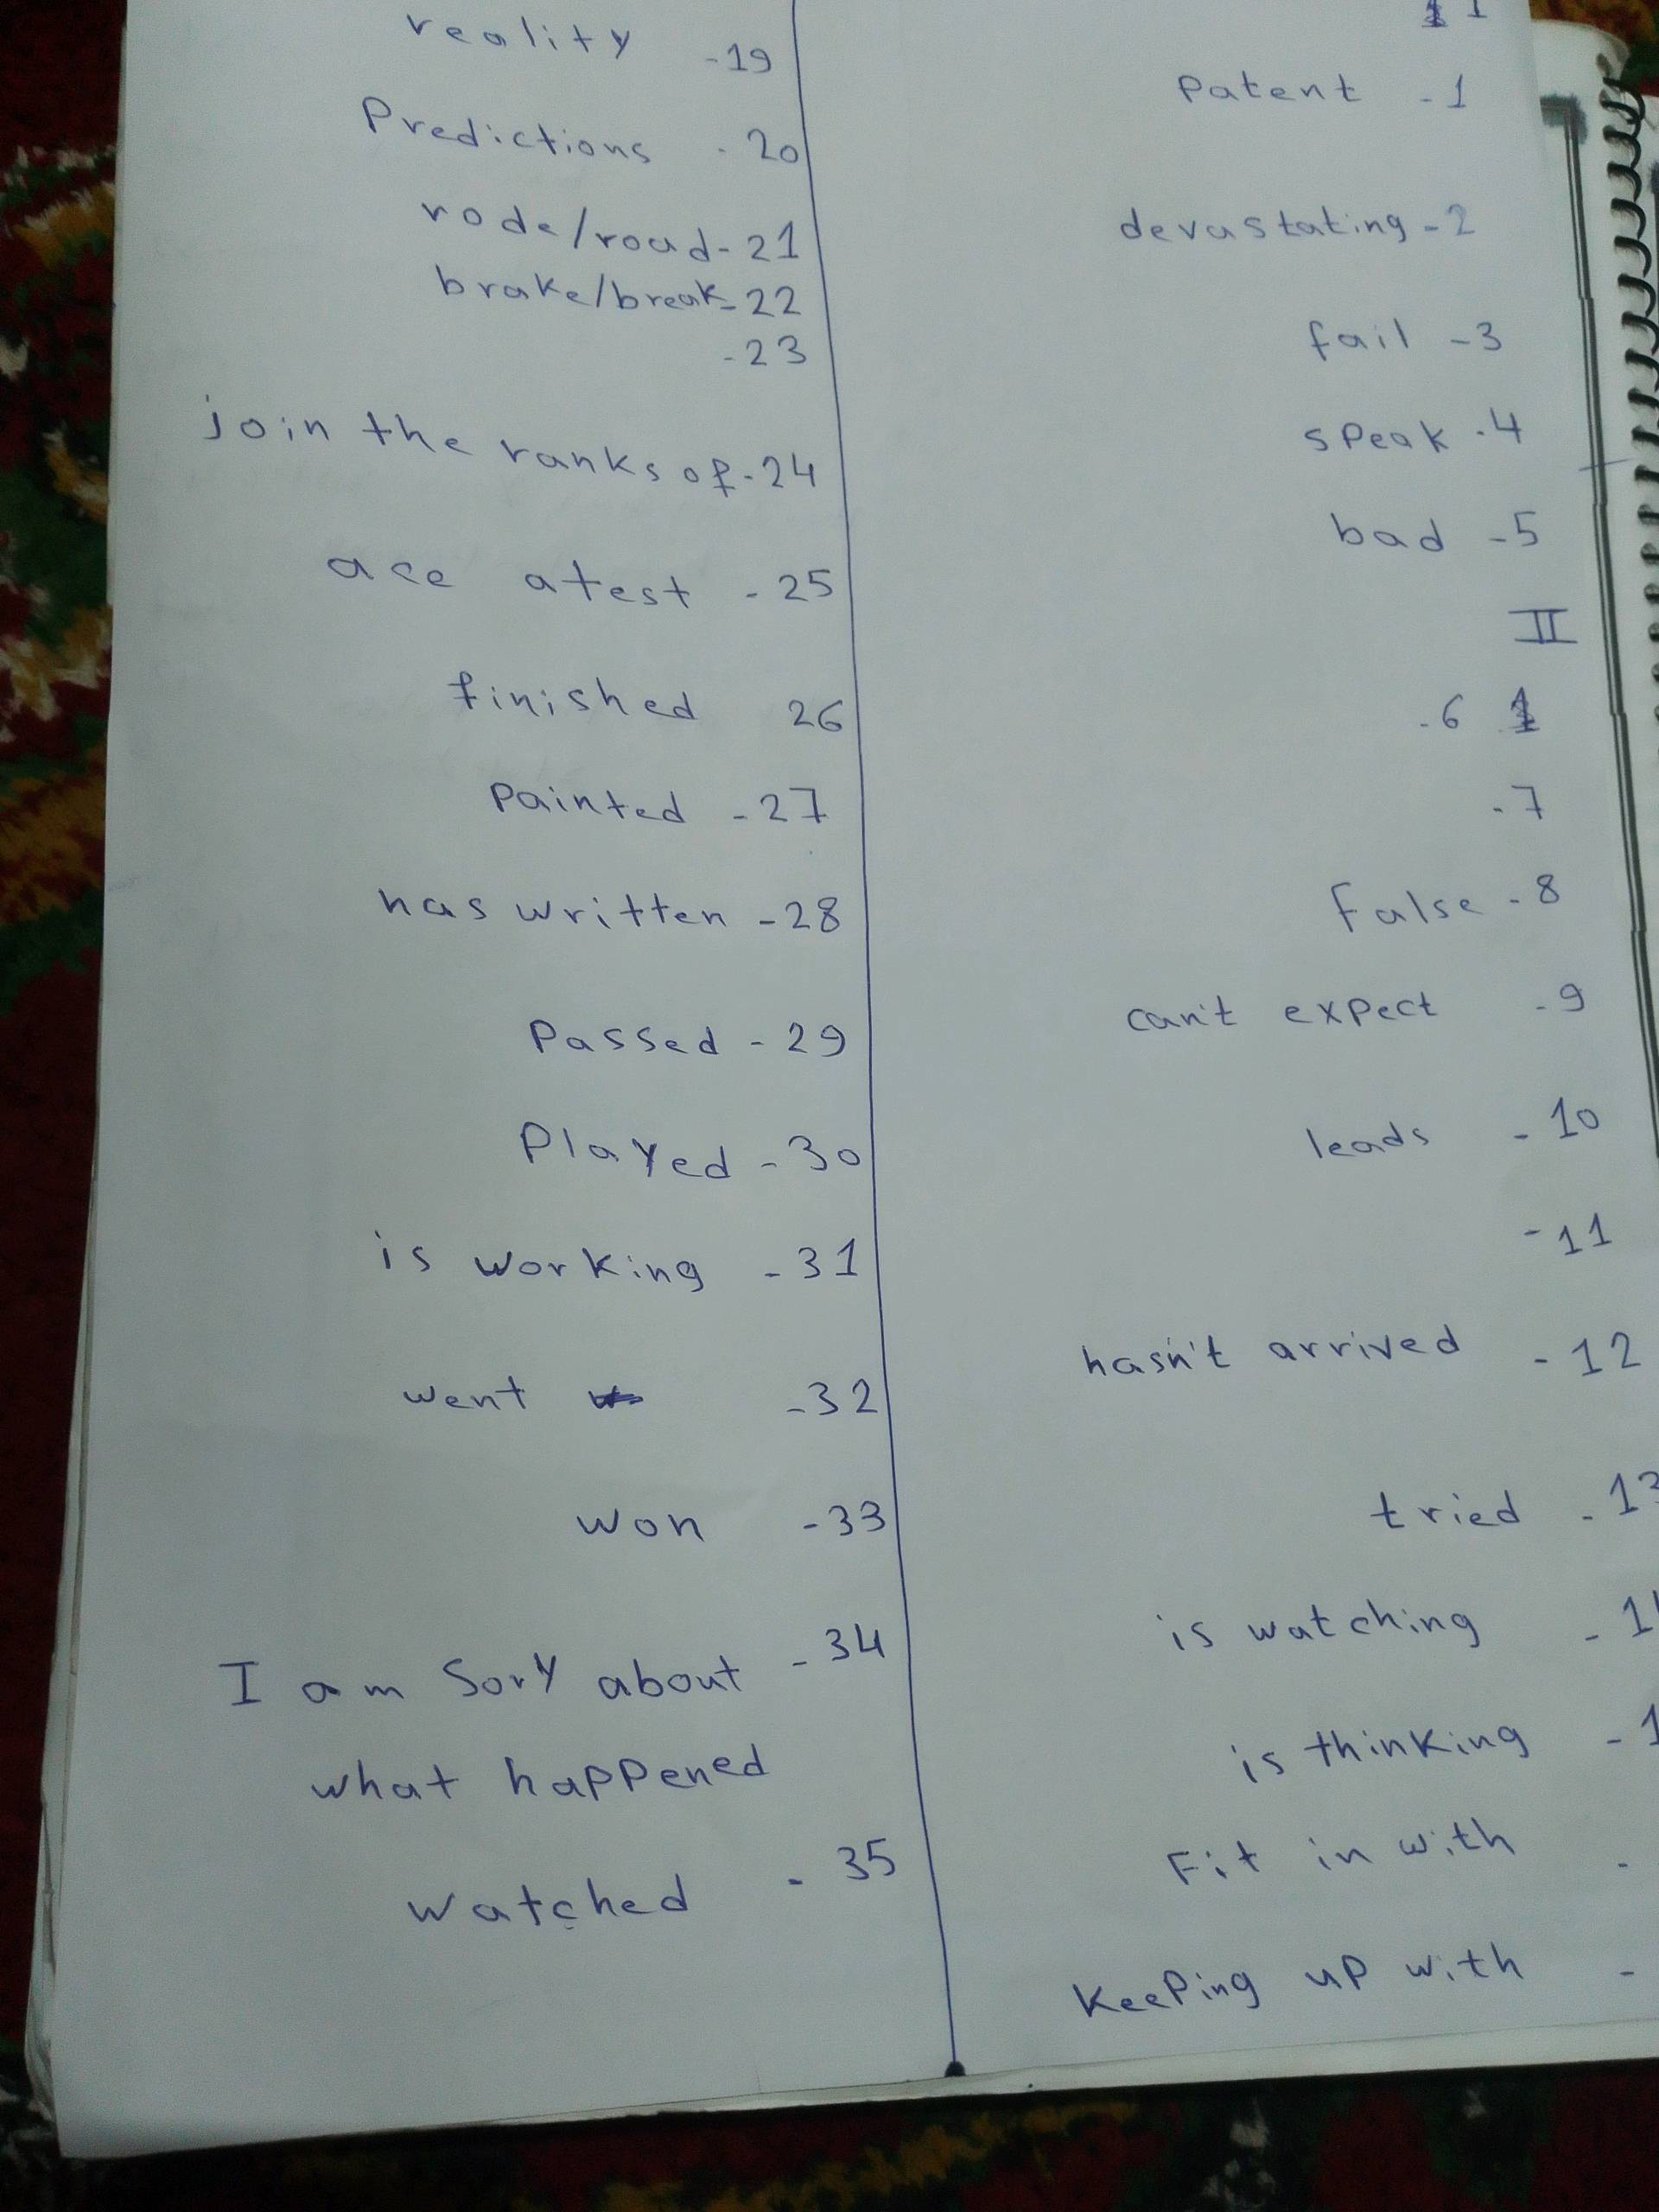 1
Patent -1
devastating -2
fail -3
speak -4
bad -5
II
-6
-7
False -8
can't expect -9
leads -10
-11
hasn't arrived -12
tried -13
is watching - 1
is thinking - 1
Fit in with -
Keeping up with -
reality -19
Predictions -20
rode/road-21
brake/break-22
-23
join the ranks of-24
ace atest -25
finished 26
Painted -27
has written -28
Passed -29
Played -30
is working -31
went -32
won -33
I am Sory about -34
what happened
watched -35